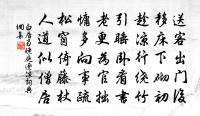 送客出門後
移床下砌初
趁涼行繞竹
引睡臥看書
老更為官拙
慵多向事疏
松窗倚藤杖
人道似僧居
白居易晚庭逐涼詩詞典
網集